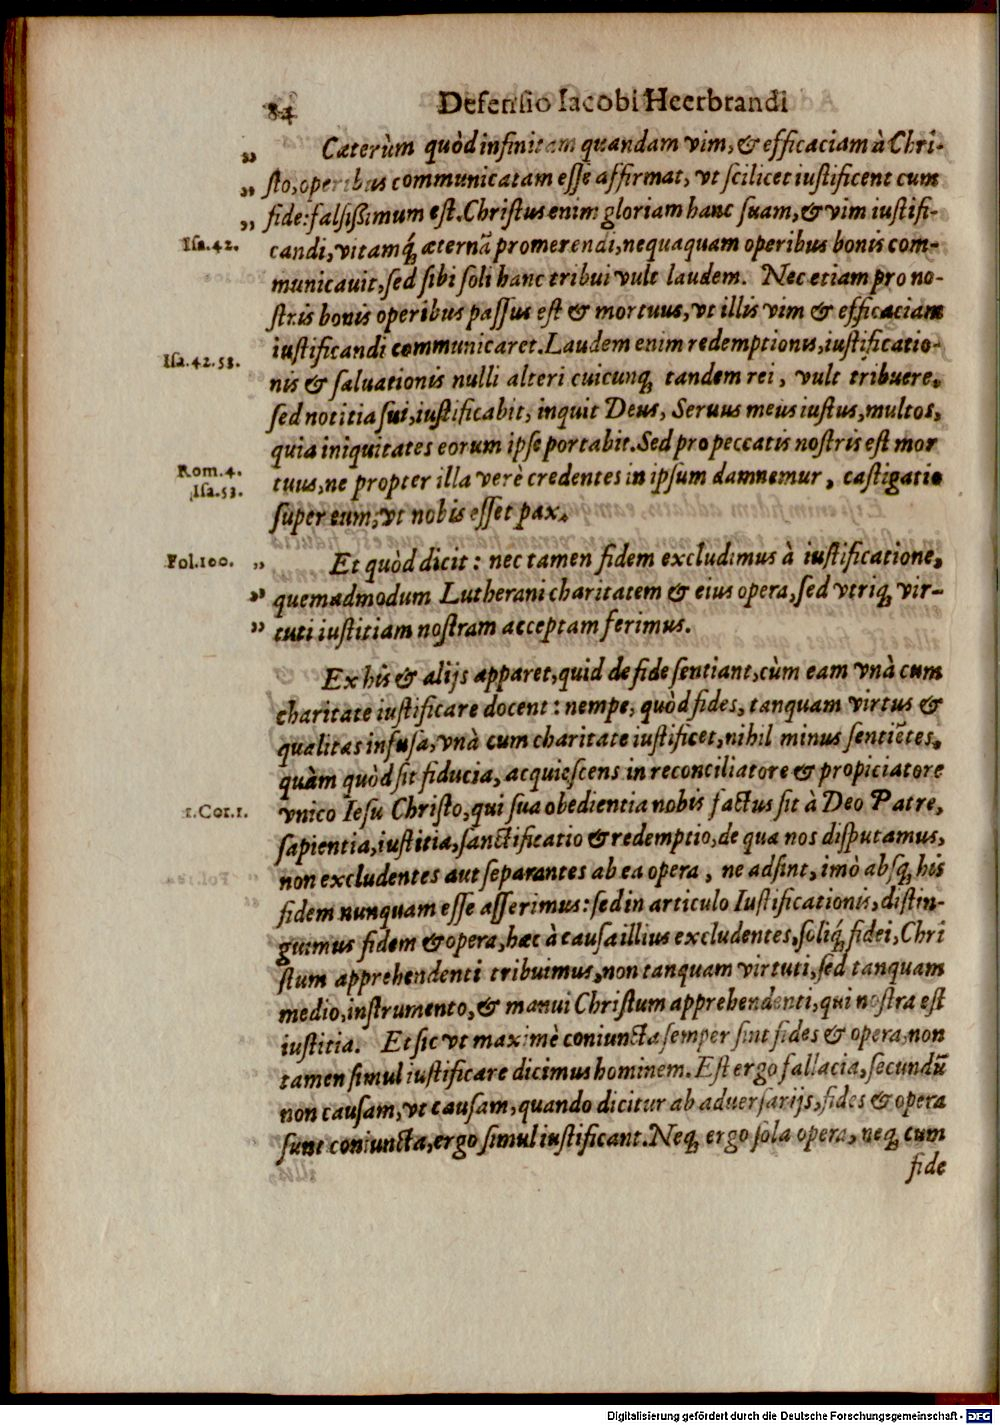 84 Defensio Iacobi Heerbrandi
„ Cæterùm quòd infinitam quandam vim, & efficaciam à Chri-
„ sto, operibus communicatam esse affirmat, vt scilicet iustificent cum
„ fide: falsißimum est. Christus enim gloriam hanc suam, & vim iustifi-
Isa. 42. candi, vitamq́; æternā promerendi, nequaquam operibus bonis com-
municauit, sed sibi soli hanc tribui vult laudem. Nec etiam pro no-
stris bonis operibus passus est & mortuus, vt illis vim & efficaciam
iustificandi communicaret. Laudem enim redemptionis, iustificatio-
Isa. 42. 53. nis & saluationis nulli alteri cuicunq; tandem rei, vult tribuere,
sed notitia sui, iustificabit, inquit Deus, Seruus meus iustus, multos,
quia iniquitates eorum ipse portabit. Sed pro peccatis nostris est mor
Rom. 4. Isa. 53. tuus, ne propter illa verè credentes in ipsum damnemur, castigatio
super eum, vt nobis esset pax.
Fol. 100. „ Et quòd dicit: nec tamen fidem excludimus à iustificatione,
„ quemadmodum Lutherani charitatem & eius opera, sed vtriq; vir-
„ tuti iustitiam nostram acceptam ferimus.
Ex his & alijs apparet, quid de fide sentiant, cùm eam vnà cum
charitate iustificare docent: nempe, quòd fides, tanquam virtus &
qualitas infusa, vnà cum charitate iustificet, nihil minus sentiētes,
quàm quòd sit fiducia, acquiescens in reconciliatore & propiciatore
1. Cor. 1. vnico Iesu Christo, qui sua obedientia nobis factus sit à Deo Patre,
sapientia, iustitia, sanctificatio & redemptio, de qua nos disputamus,
non excludentes aut separantes ab ea opera, ne adsint, imò absq; his
fidem nunquam esse asserimus: sed in articulo Iustificationis, distin-
guimus fidem & opera, hæc à causa illius excludentes, soliq́; fidei, Chri
stum apprehendenti tribuimus, non tanquam virtuti, sed tanquam
medio, instrumento, & manui Christum apprehendenti, qui nostra est
iustitia. Et sic vt maximè coniuncta semper sint fides & opera, non
tamen simul iustificare dicimus hominem. Est ergo fallacia, secundū
non causam, vt causam, quando dicitur ab aduersarijs, fides & opera
sunt coniuncta, ergo simul iustificant. Neq; ergo sola opera, neq; cum
fide
Digitalisierung gefördert durch die Deutsche Forschungsgemeinschaft - DFG